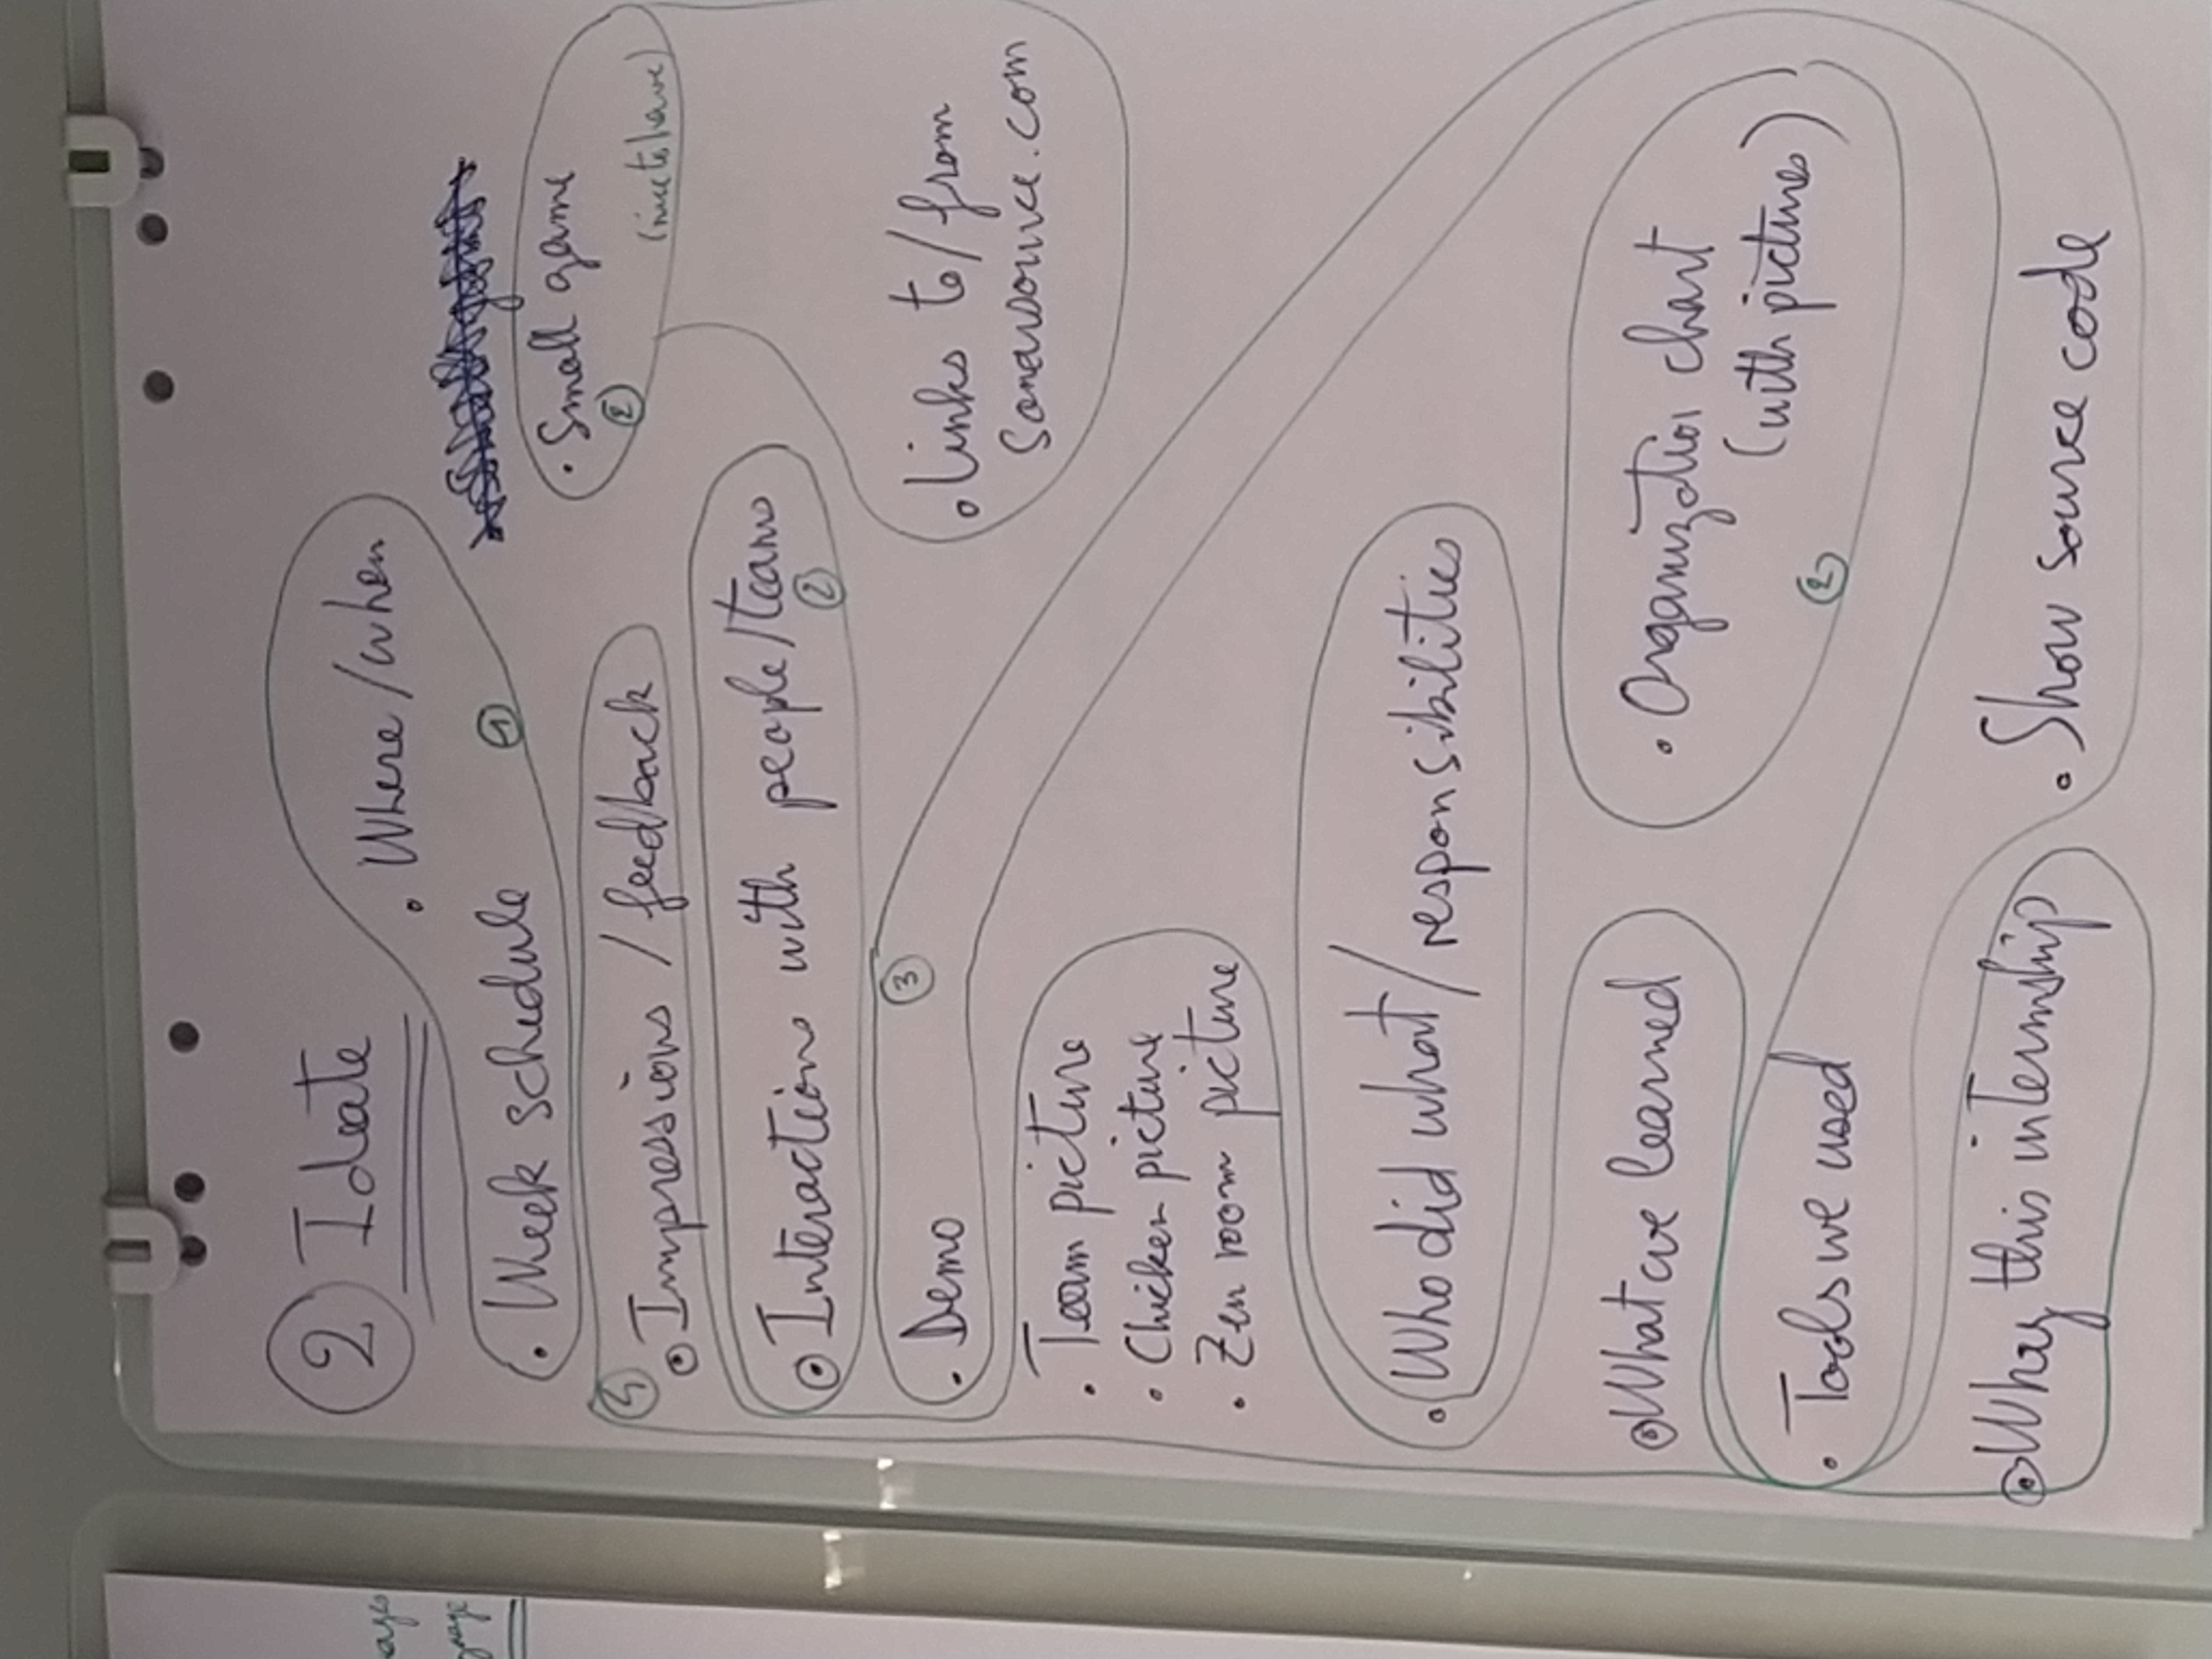 ages
② Ideate
• Where/when
• Week schedule ①
• Small game
② (nice to have)
④
• Impressions / feedback
• Interactions with people/teams
②
• Demo ③
• links to/from
sonarsource.com
• Team picture
• Chicken picture
• Zen room picture
• Who did what/responsibilities
• What we learned
• Organization chart
(with pictures)
②
• Tools we used
• Why this internship
• Show source code